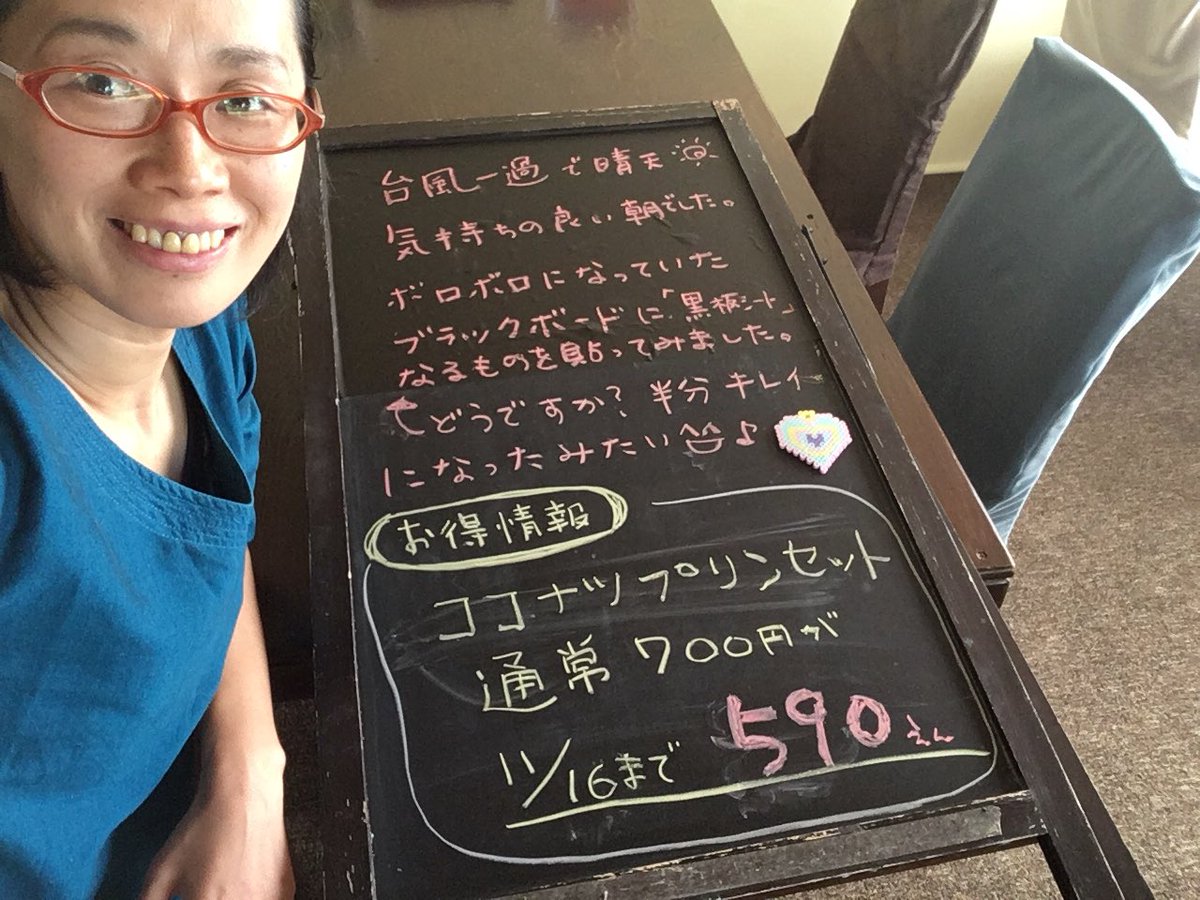 台風一過で晴天
気持ちの良い朝でした。
ボロボロになっていた
ブラックボードに「黒板シート」
なるものを貼ってみました。
どうですか？半分キレイ
になったみたい♪
お得情報
ココナツプリンセット
通常700円が
11/16まで 590えん